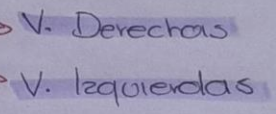 V. Derechas
V. Izquierdas